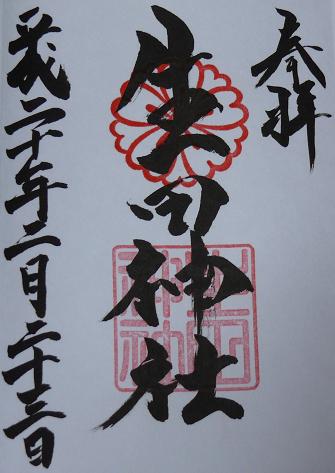 奉拝
生田神社
平成二十年二月二十三日